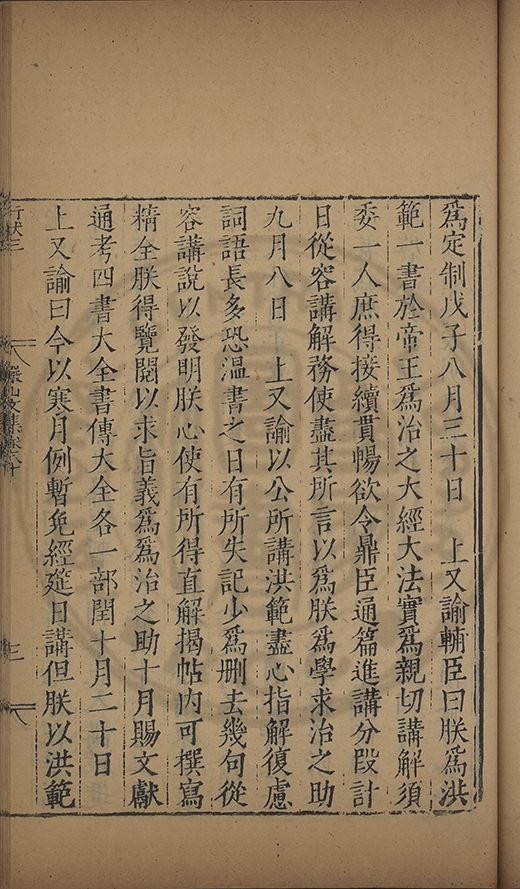 爲定制戊子八月三十日　上又諭輔臣曰朕爲洪
範一書於帝王爲治之大經大法實爲親切講解須
委一人庶得接續貫暢欲令鼎臣通篇進講分段計
日從容講解務使盡其所言以爲朕爲學求治之助
九月八日　上又諭以公所講洪範盡心指解復慮
詞語長多恐溫書之日有所失記少爲刪去幾句從
容講說以發明朕心使有所得直解揭帖內可撰寫
精全朕得覽閱以求旨義爲爲治之助十月賜文獻
通考四書大全書傳大全各一部閏十月二十日
上又諭曰今以寒月例暫免經筵日講但朕以洪範
行狀三
三